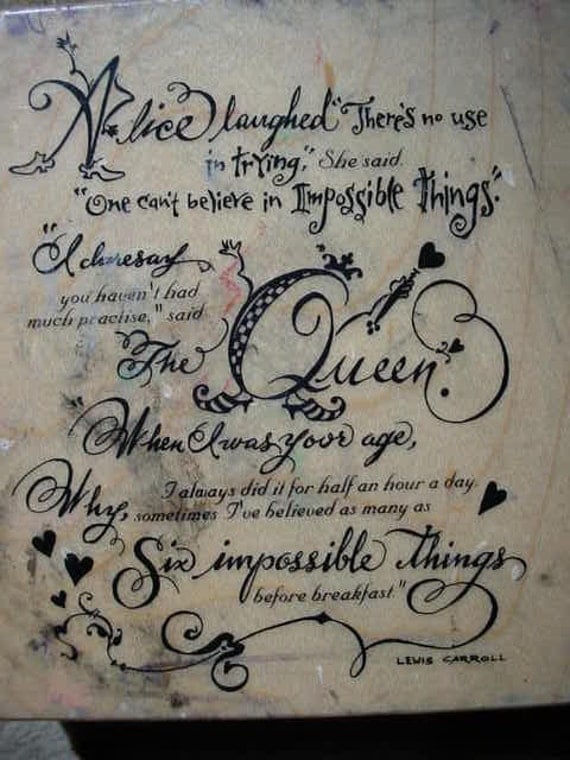 Alice laughed "There's no use
in trying," She said.
"One can't believe in Impossible Things".
"I daresay
you haven't had
much practise," said
The Queen.
"When I was your age,
I always did it for half an hour a day.
Why, sometimes I've believed as many as
Six impossible Things
before breakfast."
LEWIS CARROLL